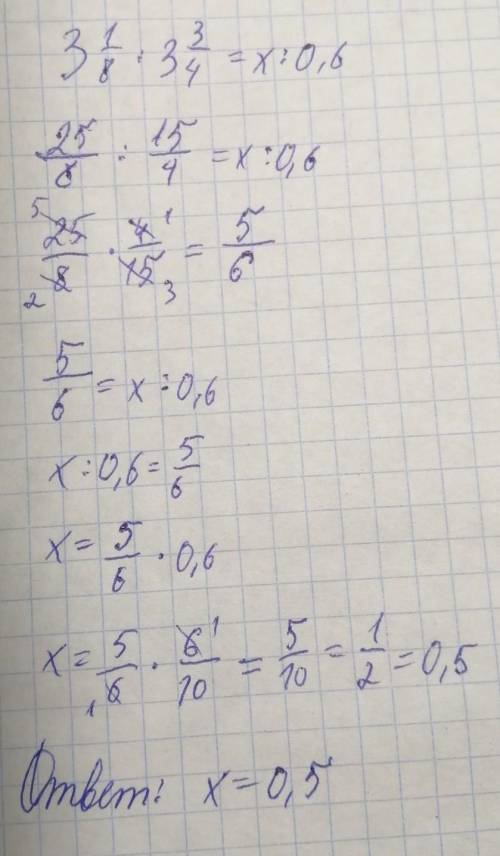 3 1/8 : 3 3/4 = x : 0,6
25/8 : 15/4 = x : 0,6
5 25/8 2 · 4 1/15 3 = 5/6
5/6 = x : 0,6
x : 0,6 = 5/6
x = 5/6 · 0,6
x = 5/6 1 · 6 1/10 = 5/10 = 1/2 = 0,5
Ответ: x = 0,5